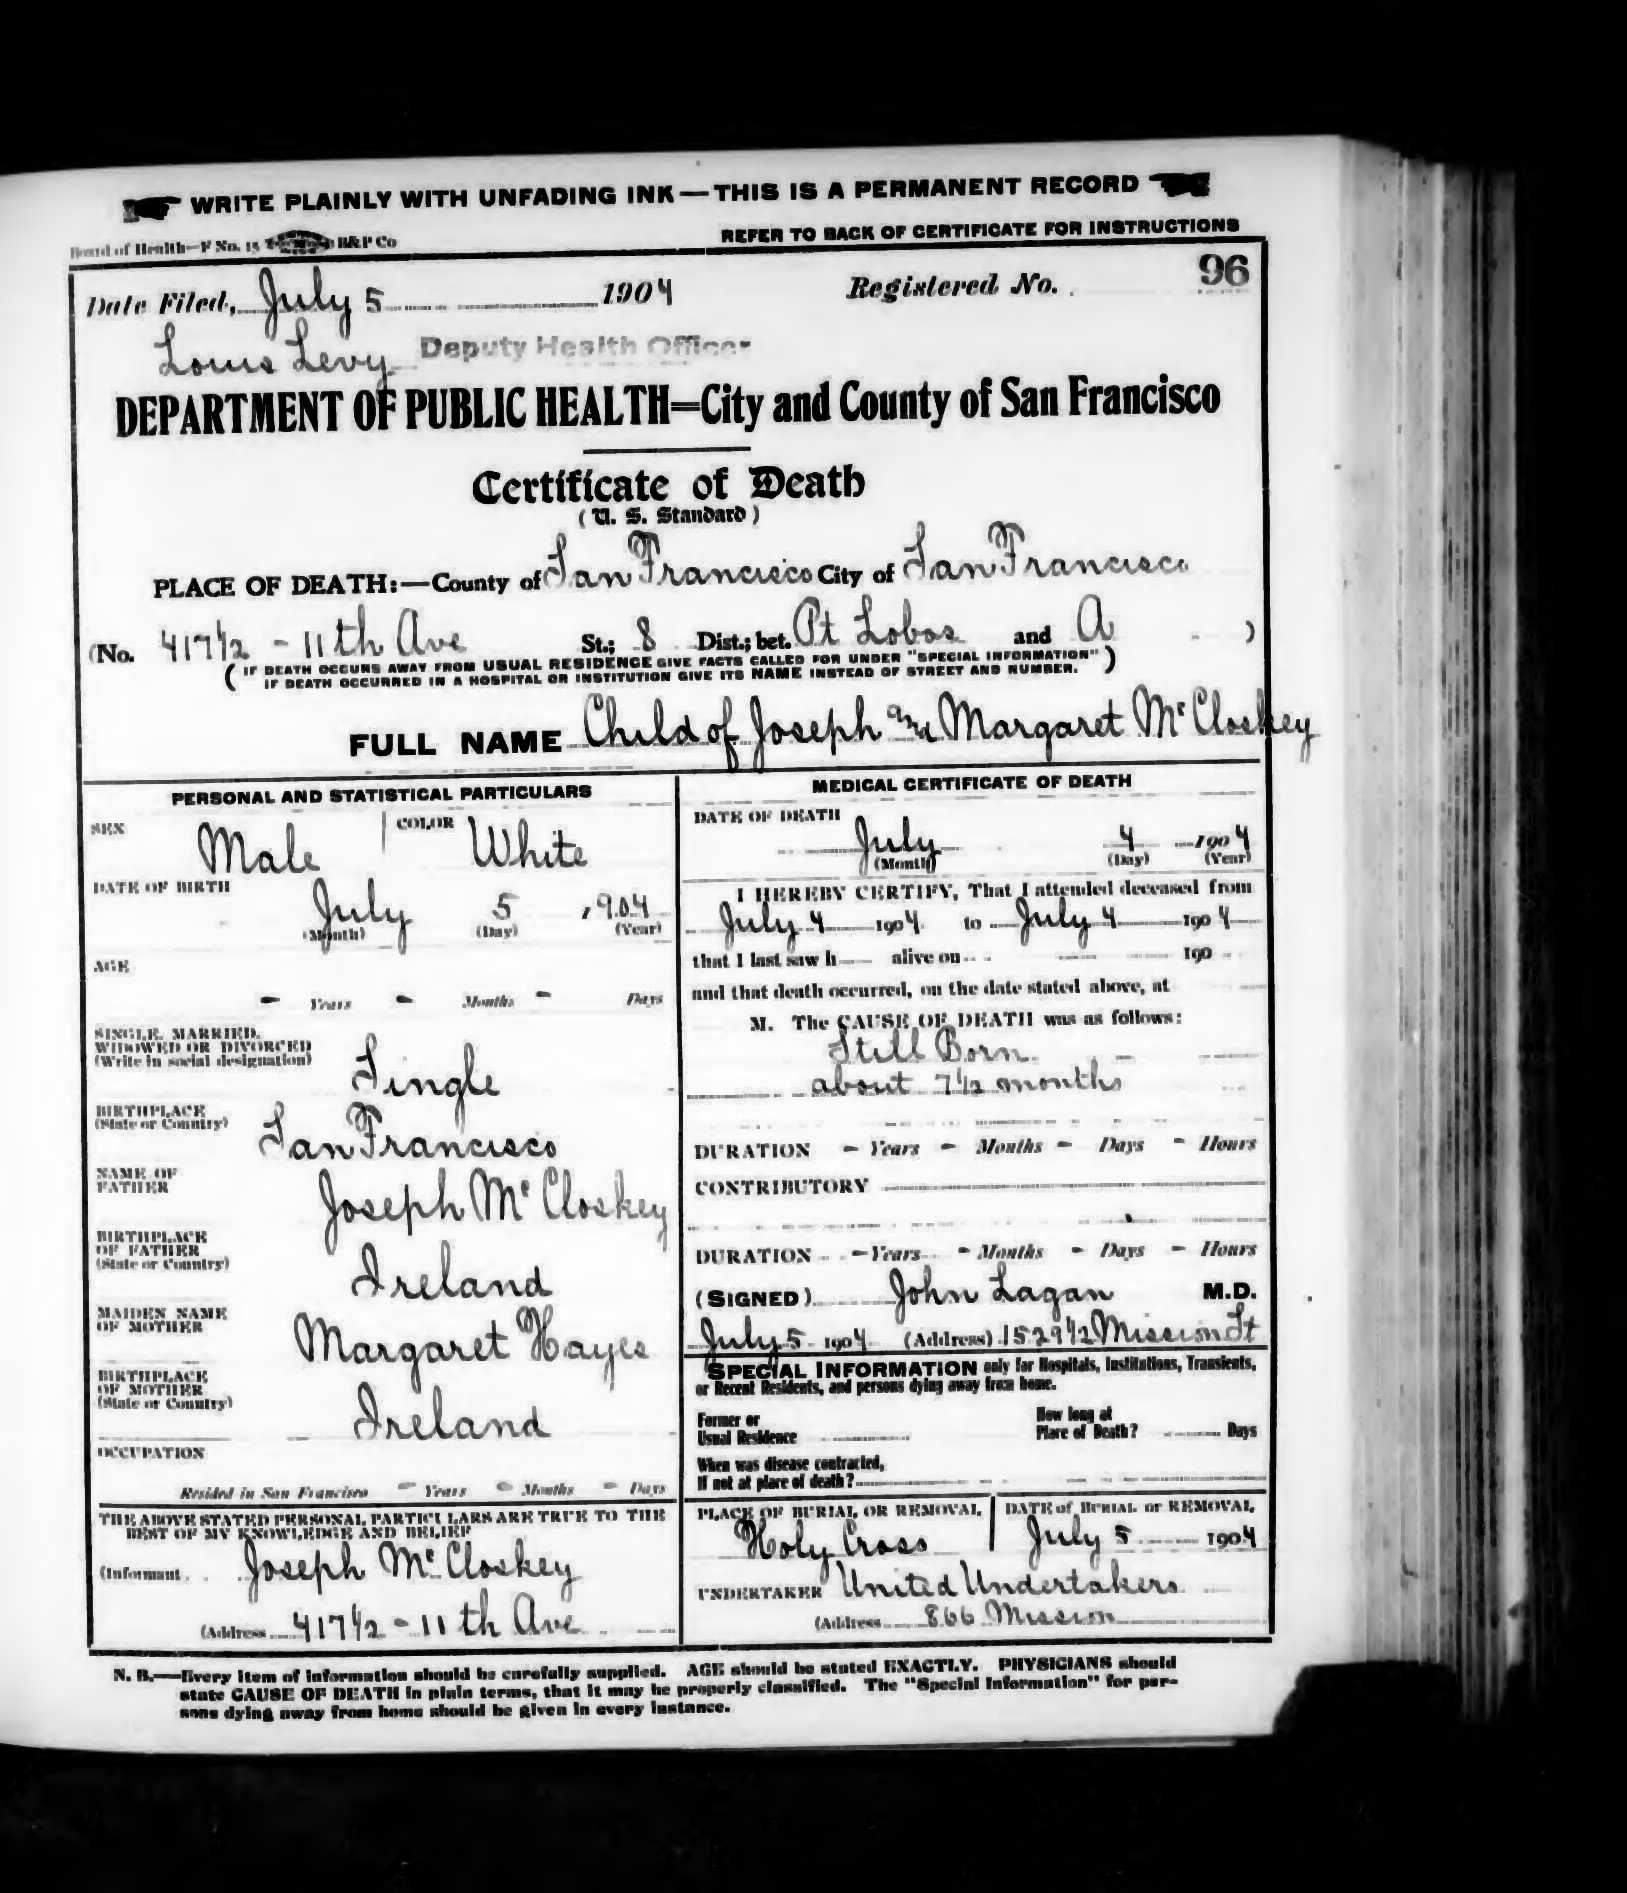 WRITE PLAINLY WITH UNFADING INK — THIS IS A PERMANENT RECORD
Board of Health—F No. 15 H&P Co
REFER TO BACK OF CERTIFICATE FOR INSTRUCTIONS
Date Filed, July 5 1904 Registered No. 96
Louis Levy Deputy Health Officer
DEPARTMENT OF PUBLIC HEALTH=City and County of San Francisco
Certificate of Death
( U. S. Standard )
PLACE OF DEATH:—County of San Francisco City of San Francisco
(No. 417 1/2 - 11th Ave St.; 8 Dist.; bet. Pt Lobos and A )
( IF DEATH OCCURS AWAY FROM USUAL RESIDENCE GIVE FACTS CALLED FOR UNDER "SPECIAL INFORMATION" )
IF DEATH OCCURRED IN A HOSPITAL OR INSTITUTION GIVE ITS NAME INSTEAD OF STREET AND NUMBER.
FULL NAME Child of Joseph and Margaret McCloskey
PERSONAL AND STATISTICAL PARTICULARS
SEX Male COLOR White
DATE OF BIRTH
July 5 , 904
(Month) (Day) (Year)
AGE
- Years - Months - Days
SINGLE, MARRIED,
WIDOWED OR DIVORCED
(Write in social designation)
Single
BIRTHPLACE
(State or Country)
San Francisco
NAME OF
FATHER
Joseph McCloskey
BIRTHPLACE
OF FATHER
(State or Country)
Ireland
MAIDEN NAME
OF MOTHER
Margaret Hayes
BIRTHPLACE
OF MOTHER
(State or Country)
Ireland
OCCUPATION
Resided in San Francisco - Years - Months - Days
THE ABOVE STATED PERSONAL PARTICULARS ARE TRUE TO THE
BEST OF MY KNOWLEDGE AND BELIEF
(Informant Joseph McCloskey
(Address 417 1/2 - 11th Ave
MEDICAL CERTIFICATE OF DEATH
DATE OF DEATH
July 4 1904
(Month) (Day) (Year)
I HEREBY CERTIFY, That I attended deceased from
July 4 1904 to July 4 1904
that I last saw h alive on 190
and that death occurred, on the date stated above, at
M. The CAUSE OF DEATH was as follows:
Still Born
about 7 1/2 months
DURATION - Years - Months - Days - Hours
CONTRIBUTORY
DURATION - Years - Months - Days - Hours
(SIGNED) John Lagan M.D.
July 5 1904 (Address) 1529 1/2 Mission St
SPECIAL INFORMATION only for Hospitals, Institutions, Transients,
or Recent Residents, and persons dying away from home.
Former or
Usual Residence
How long at
Place of Death? Days
When was disease contracted,
If not at place of death?
PLACE OF BURIAL OR REMOVAL
Holy Cross
DATE of BURIAL or REMOVAL
July 5 1904
UNDERTAKER United Undertakers
(Address 866 Mission
N. B.—Every item of information should be carefully supplied. AGE should be stated EXACTLY. PHYSICIANS should
state CAUSE OF DEATH in plain terms, that it may be properly classified. The "Special Information" for per-
sons dying away from home should be given in every instance.